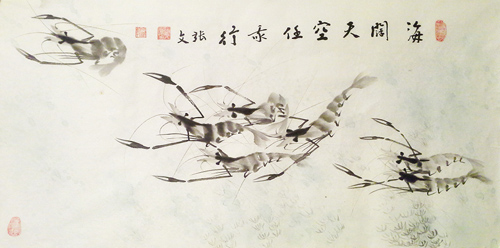 海闊天空任我行 張文